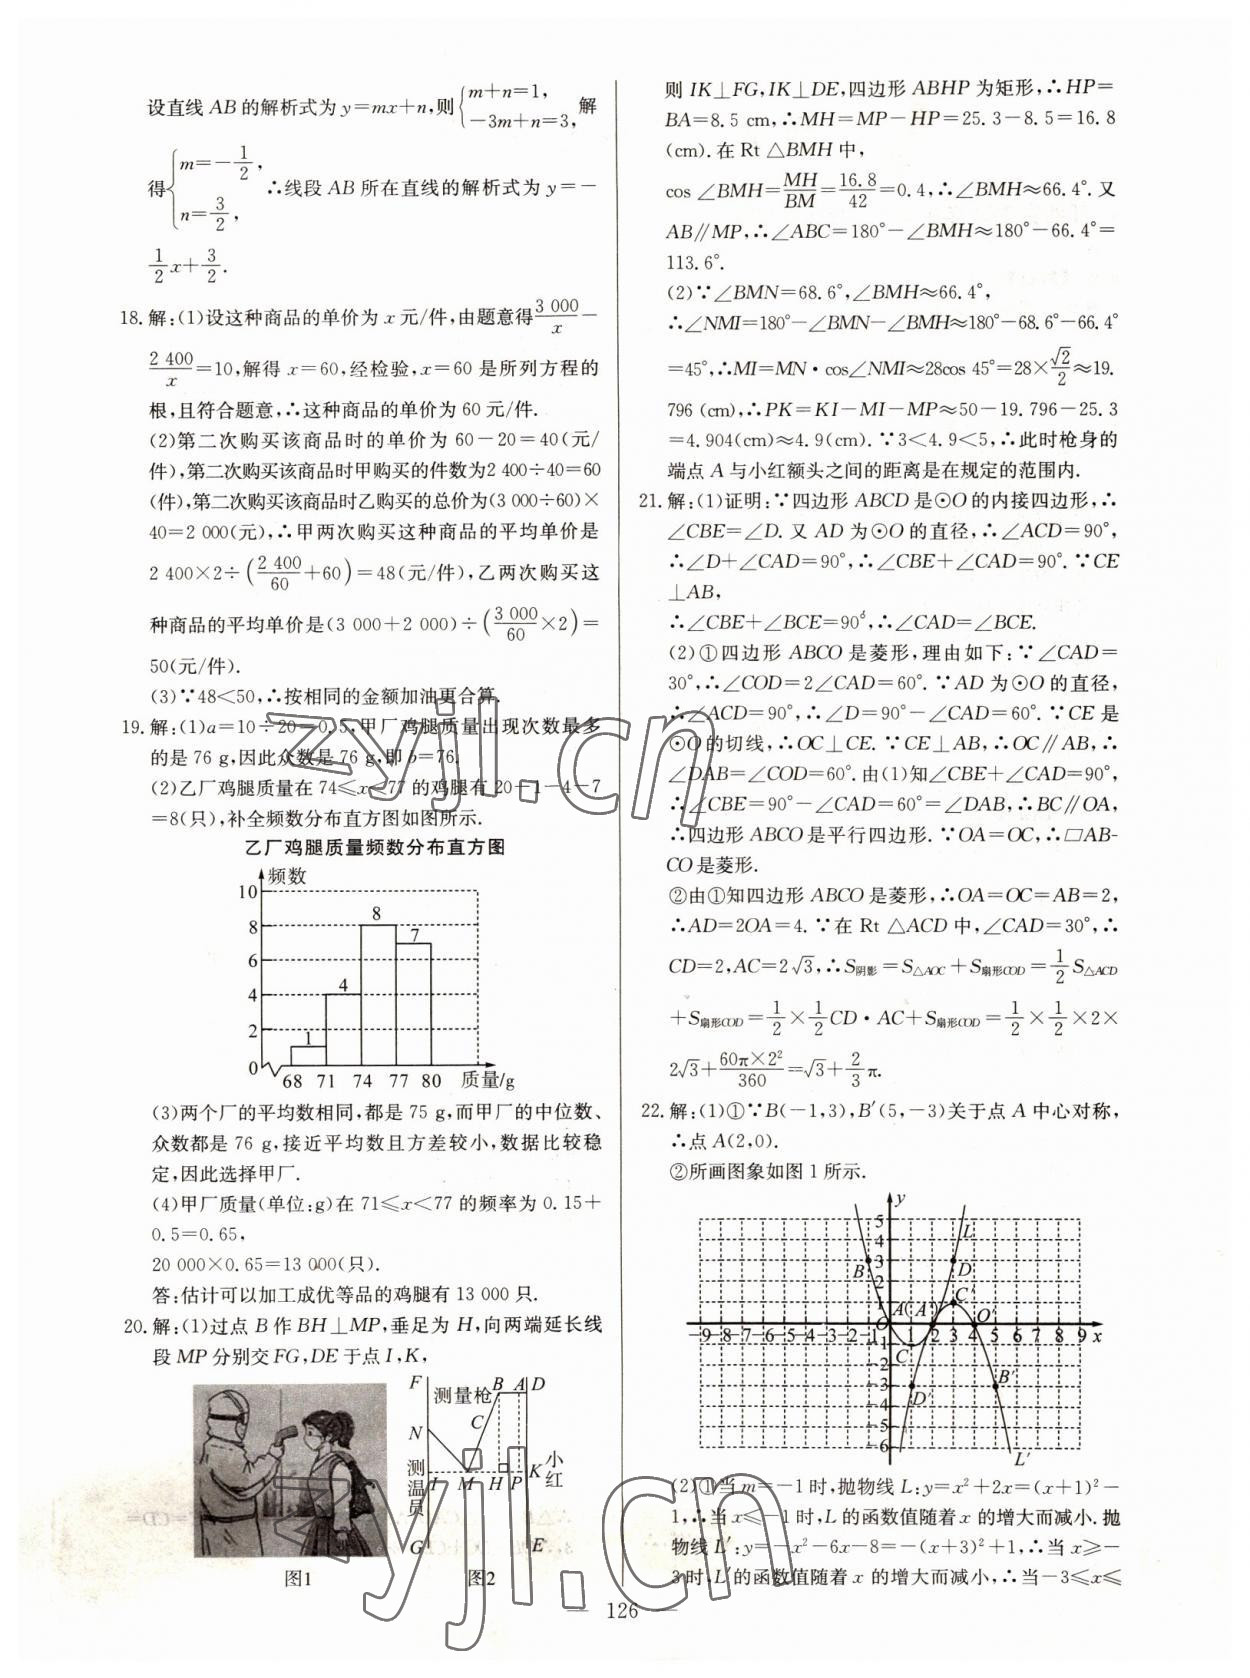 设直线 AB 的解析式为 y=mx+n,则{m+n=1, -3m+n=3, 解
得{m=-1/2, n=3/2, ∴线段 AB 所在直线的解析式为 y=-
1/2x+3/2.
18. 解:(1)设这种商品的单价为 x 元/件,由题意得3 000/x-
2 400/x=10,解得 x=60,经检验,x=60 是所列方程的
根,且符合题意,∴这种商品的单价为 60 元/件.
(2)第二次购买该商品时的单价为 60-20=40(元/
件),第二次购买该商品时甲购买的件数为2 400÷40=60
(件),第二次购买该商品时乙购买的总价为(3 000÷60)×
40=2 000(元),∴甲两次购买这种商品的平均单价是
2 400×2÷(2 400/60+60)=48(元/件),乙两次购买这
种商品的平均单价是(3 000+2 000)÷(3 000/60×2)=
50(元/件).
(3)∵48<50,∴按相同的金额加油更合算.
19. 解:(1)a=10÷20=0.5,甲厂鸡腿质量出现次数最多
的是 76 g,因此众数是 76 g,即 b=76.
(2)乙厂鸡腿质量在 74≤x<77 的鸡腿有 20-1-4-7
=8(只),补全频数分布直方图如图所示.
乙厂鸡腿质量频数分布直方图
频数
10
8
6
4
2
0
1
4
8
7
68 71 74 77 80 质量/g
(3)两个厂的平均数相同,都是 75 g,而甲厂的中位数、
众数都是 76 g,接近平均数且方差较小,数据比较稳
定,因此选择甲厂.
(4)甲厂质量(单位:g)在 71≤x<77 的频率为 0.15+
0.5=0.65,
20 000×0.65=13 000(只).
答:估计可以加工成优等品的鸡腿有 13 000 只.
20. 解:(1)过点 B 作 BH⊥MP,垂足为 H,向两端延长线
段 MP 分别交 FG,DE 于点 I,K,
F 测量枪 B A D
N C
测温员 I M H P K 小红
G E
图1 图2
则 IK⊥FG,IK⊥DE,四边形 ABHP 为矩形,∴HP=
BA=8.5 cm,∴MH=MP-HP=25.3-8.5=16.8
(cm).在 Rt △BMH 中,
cos ∠BMH=MH/BM=16.8/42=0.4,∴∠BMH≈66.4°.又
AB∥MP,∴∠ABC=180°-∠BMH≈180°-66.4°=
113.6°.
(2)∵∠BMN=68.6°,∠BMH≈66.4°,
∴∠NMI=180°-∠BMN-∠BMH≈180°-68.6°-66.4°
=45°,∴MI=MN·cos∠NMI≈28cos 45°=28×√2/2≈19.
796 (cm),∴PK=KI-MI-MP≈50-19.796-25.3
=4.904(cm)≈4.9(cm).∵3<4.9<5,∴此时枪身的
端点 A 与小红额头之间的距离是在规定的范围内.
21. 解:(1)证明:∵四边形 ABCD 是⊙O 的内接四边形,∴
∠CBE=∠D.又 AD 为⊙O 的直径,∴∠ACD=90°,
∴∠D+∠CAD=90°,∴∠CBE+∠CAD=90°.∵CE
⊥AB,
∴∠CBE+∠BCE=90°,∴∠CAD=∠BCE.
(2)①四边形 ABCO 是菱形,理由如下:∵∠CAD=
30°,∴∠COD=2∠CAD=60°.∵AD 为⊙O 的直径,
∴∠ACD=90°,∴∠D=90°-∠CAD=60°.∵CE 是
⊙O的切线,∴OC⊥CE.∵CE⊥AB,∴OC∥AB,∴
∠DAB=∠COD=60°.由(1)知∠CBE+∠CAD=90°,
∴∠CBE=90°-∠CAD=60°=∠DAB,∴BC∥OA,
∴四边形 ABCO 是平行四边形.∵OA=OC,∴□AB-
CO是菱形.
②由①知四边形 ABCO 是菱形,∴OA=OC=AB=2,
∴AD=2OA=4.∵在 Rt △ACD 中,∠CAD=30°,∴
CD=2,AC=2√3,∴S阴影=S△AOC+S扇形COD=1/2S△ACD
+S扇形COD=1/2×1/2CD·AC+S扇形COD=1/2×1/2×2×
2√3+60π×2²/360=√3+2/3π.
22. 解:(1)①∵B(-1,3),B′(5,-3)关于点 A 中心对称,
∴点 A(2,0).
②所画图象如图 1 所示.
y
5
4
3
2
1
L
B D
C′
A(A′) O′
O
-9-8-7-6-5-4-3-2-1 1 2 3 4 5 6 7 8 9 x
C
D′ B′
-1
-2
-3
-4
-5
-6
L′
(2)①当 m=-1 时,抛物线 L:y=x²+2x=(x+1)²-
1,∴当 x≤-1时,L 的函数值随着 x 的增大而减小.抛
物线 L′:y=-x²-6x-8=-(x+3)²+1,∴当 x≥-
3 时,L′的函数值随着 x 的增大而减小,∴当-3≤x≤
126
zyjl.cn
zyjl.cn